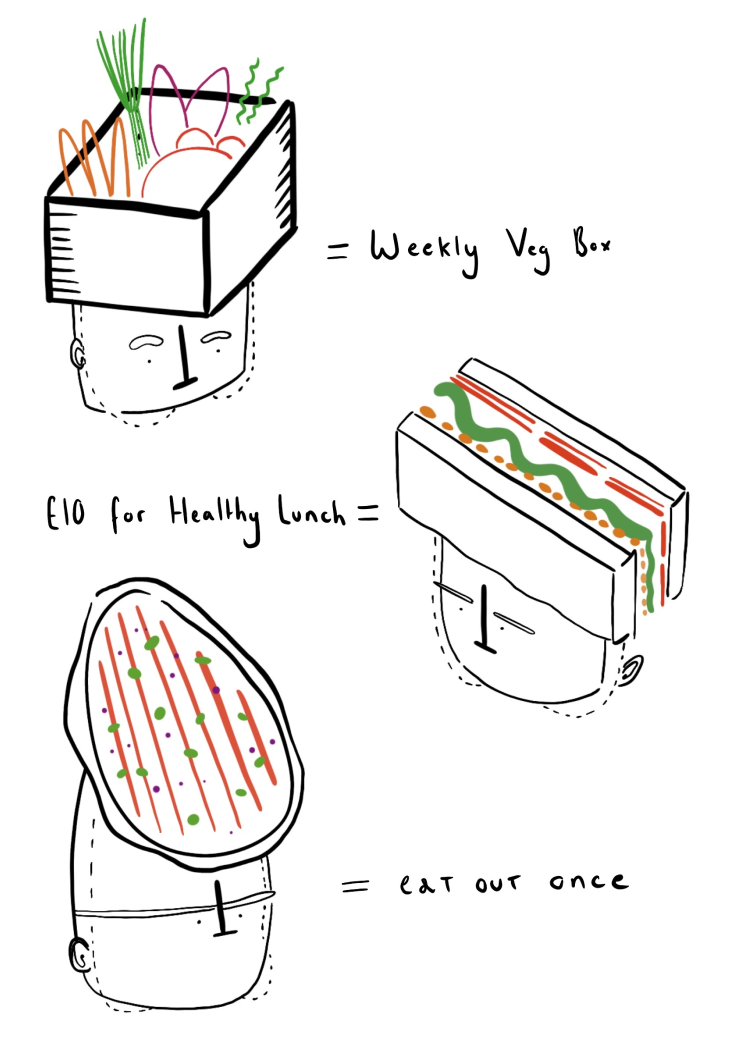 = Weekly Veg Box
£10 for Healthy Lunch =
= eat out once